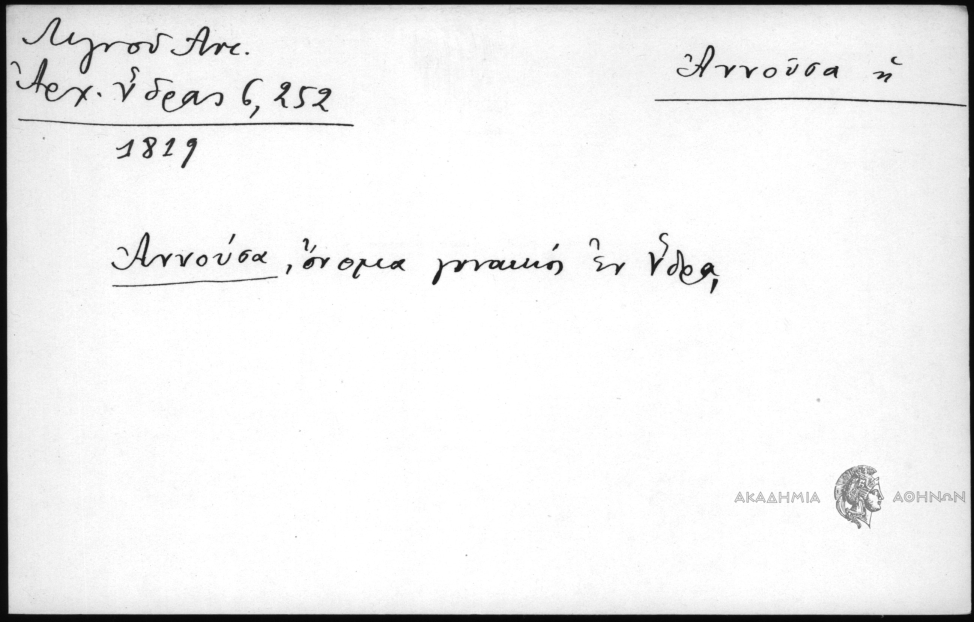 Λιγνοῦ Αντ.
Ἀρχ. Ὕδρας 6, 252
1819
Ἀννοῦσα ἡ
Ἀννούσα, ὄνομα γυναικός ἐν Ὕδρᾳ,
ΑΚΑΔΗΜΙΑ ΑΘΗΝΩΝ